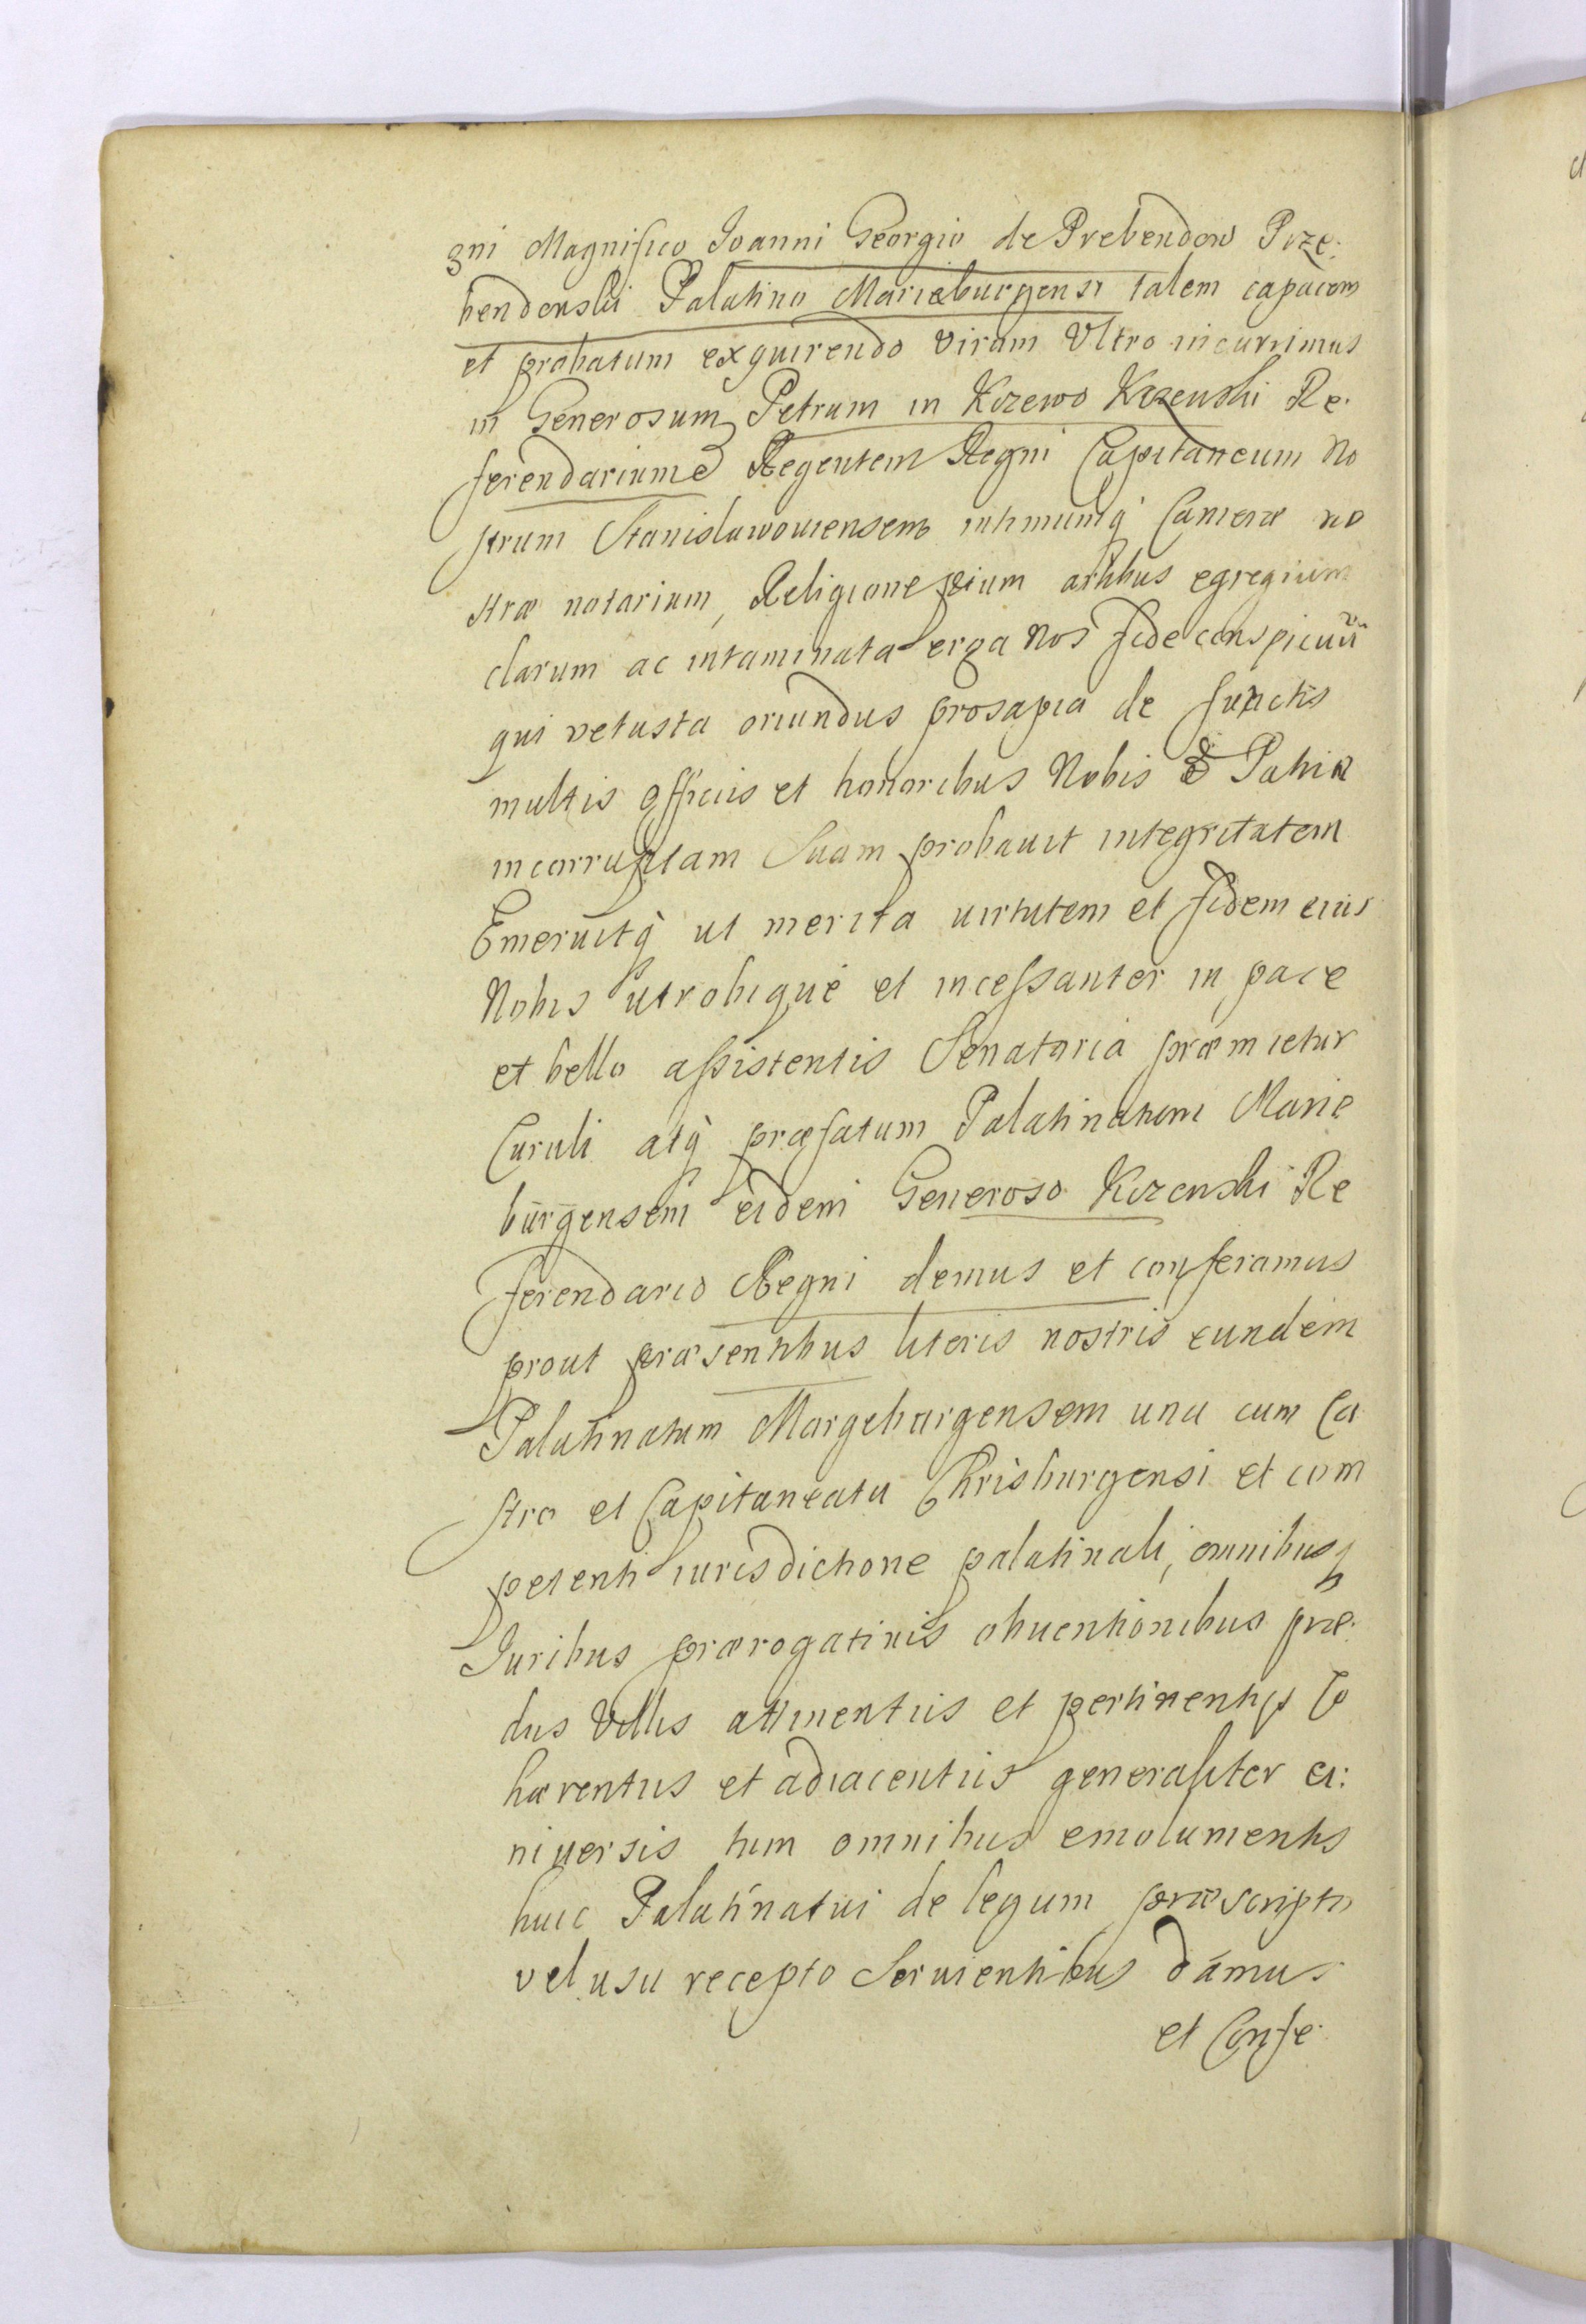 gni Magnifico Joanni Georgio de Prebendow Prze:
bendonski Palatino Mariæburgensi talem capacem
et probatum exquirendo Virum Ultro incurrimus
in Generosum Petrum in Krzewo Krzewski Re:
ferendarium & Regentem Regni Capitaneum No
strum Stanislawowiensem intimumq́ Cameræ no
stræ notarium, Religione pium artibus egregium
clarum ac intaminata erga Nos fide conspicuũ
qui vetusta oriundus prosapia de functis
multis officiis et honoribus Nobis & Patriæ
incorruptam Suam probauit integritatem
Emeruitq́ ut merita uirtutem et fidem eius
Nobis utrobique et incessanter in pace
et bello assistentis Senatoria præmietur
Curuli atq́ præfatum Palatinatum Marie
burgensem eidem Generoso Krzewski Re
ferendario Regni demus et conferamus
prout præsentibus literis nostris eundem
Palatinatum Margeburgensem una cum Ca
stro et Capitaneatu Chrisburgensi et com
petenti iurisdictione palatinali, omnibusq́
Juribus prærogatiuis obuentionibus præ:
dus Villis attinentiis et pertinentijs Co
hærentiis et adiacentiis generaliter u:
niuersis tum omnibus emolumentis
huic Palatinatui de legum præscripto
vel usu recepto Seruientibus dámus
et Confe: